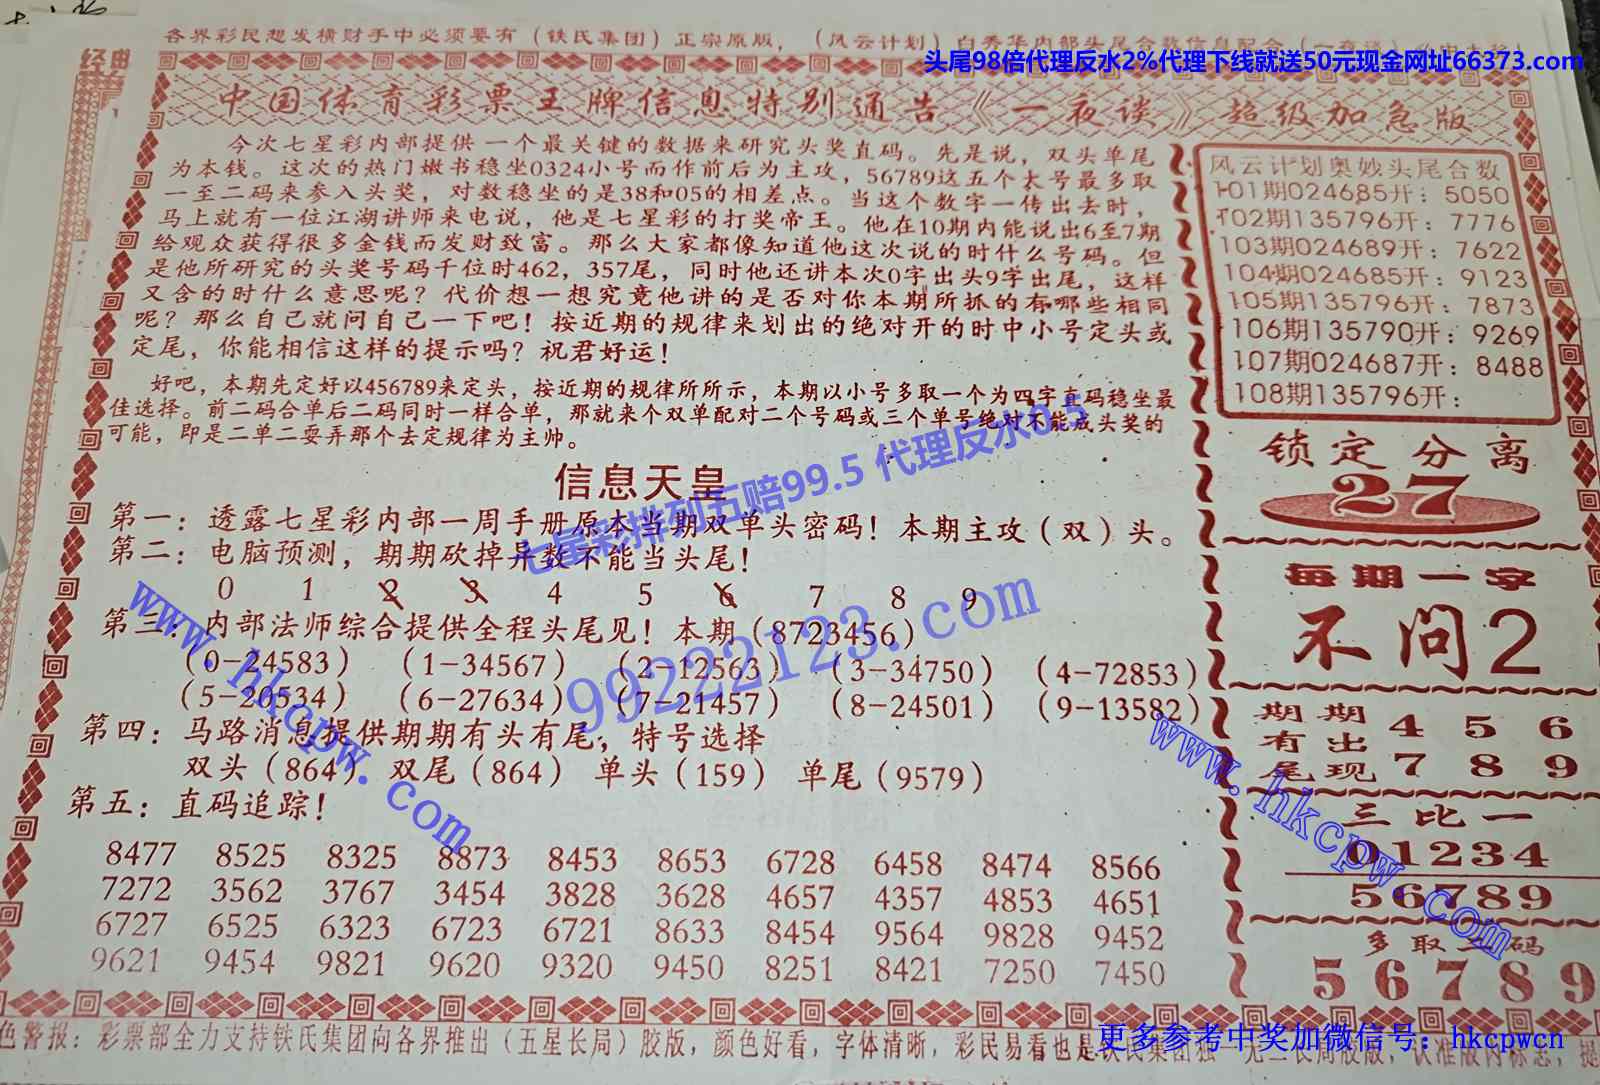 各界彩民想发横财手中必须要有（铁氏集团）正宗原版，（风云计划）白秀华内部头尾合数信息配合
头尾98倍代理反水2%代理下线就送50元现金网址66373.com
经典
中国体育彩票王牌信息特别通告《一夜谈》超级加急版
今次七星彩内部提供一个最关键的数据来研究头奖直码。先是说，双头单尾
为本钱。这次的热门嫩书稳坐0324小号而作前后为主攻，56789这五个大号最多取
一至二码来参入头奖，对数稳坐的是38和05的相差点。当这个数字一传出去时，
马上就有一位江湖讲师来电说，他是七星彩的打奖帝王。他在10期内能说出6至7期
给观众获得很多金钱而发财致富。那么大家都像知道他这次说的时什么号码。但
是他所研究的头奖号码千位时462，357尾，同时他还讲本次0字出头9字出尾，这样
又含的时什么意思呢？代价想一想究竟他讲的是否对你本期所抓的有哪些相同
呢？那么自己就问自己一下吧！按近期的规律来划出的绝对开的时中小号定头或
定尾，你能相信这样的提示吗？祝君好运！
好吧，本期先定好以456789来定头，按近期的规律所所示，本期以小号多取一个为四字直码稳坐最
佳选择。前二码合单后二码同时一样合单，那就来个双单配对二个号码或三个单号绝对不能成头奖的
可能，即是二单二耍弄那个去定规律为主帅。
信息天皇
第一：透露七星彩内部一周手册原本当期双单头密码！本期主攻（双）头。
第二：电脑预测，期期砍掉异数不能当头尾！
0 1 2 3 4 5 6 7 8 9
第三：内部法师综合提供全程头尾见！本期（8723456）
（0-24583）（1-34567）（2-12563）（3-34750）（4-72853）
（5-20534）（6-27634）（7-21457）（8-24501）（9-13582）
第四：马路消息提供期期有头有尾，特号选择
双头（864） 双尾（864） 单头（159） 单尾（9579）
第五：直码追踪！
8477 8525 8325 8873 8453 8653 6728 6458 8474 8566
7272 3562 3767 3454 3828 3628 4657 4357 4853 4651
6727 6525 6323 6723 6721 8633 8454 9564 9828 9452
9621 9454 9821 9620 9320 9450 8251 8421 7250 7450
风云计划奥妙头尾合数
101期024685开：5050
102期135796开：7776
103期024689开：7622
104期024685开：9123
105期135796开：7873
106期135790开：9269
107期024687开：8488
108期135796开：
锁定分离
27
每期一字
不问2
期期 4 5 6
有出
尾现 7 8 9
三比一
01234
56789
多取二码
56789
七星彩排列五赔99.5 代理反水0.5
www.hkcpw.com
99222123.com
www.hkcpw.com
色警报：彩票部全力支持铁氏集团向各界推出（五星长局）胶版，颜色好看，字体清晰，彩民易看也是铁氏集团独一无二长局胶版，认准版内标志，提
更多参考中奖加微信号：hkcpwcn